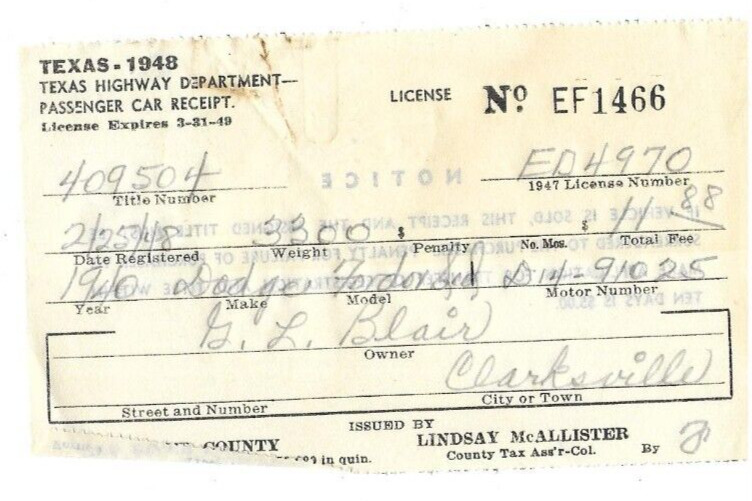 TEXAS - 1948
TEXAS HIGHWAY DEPARTMENT—
PASSENGER CAR RECEIPT.
License Expires 3-31-49
LICENSE No. EF1466
409504 ED4970
Title Number 1947 License Number
NOTICE
2/25/48 3300 $ $ 11.88
Date Registered Weight Penalty No. Mos. Total Fee
1940 Dodge Fordor Sd D14-91025
Year Make Model Motor Number
G. L. Blair
Owner
Clarksville
Street and Number City or Town
ISSUED BY
COUNTY LINDSAY McALLISTER
in quin. County Tax Ass'r-Col. By
TEN DAYS IS $5.00.